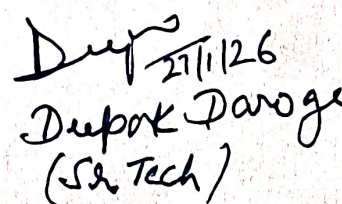 27/1/26
Deepak Daroge
(Sr. Tech)